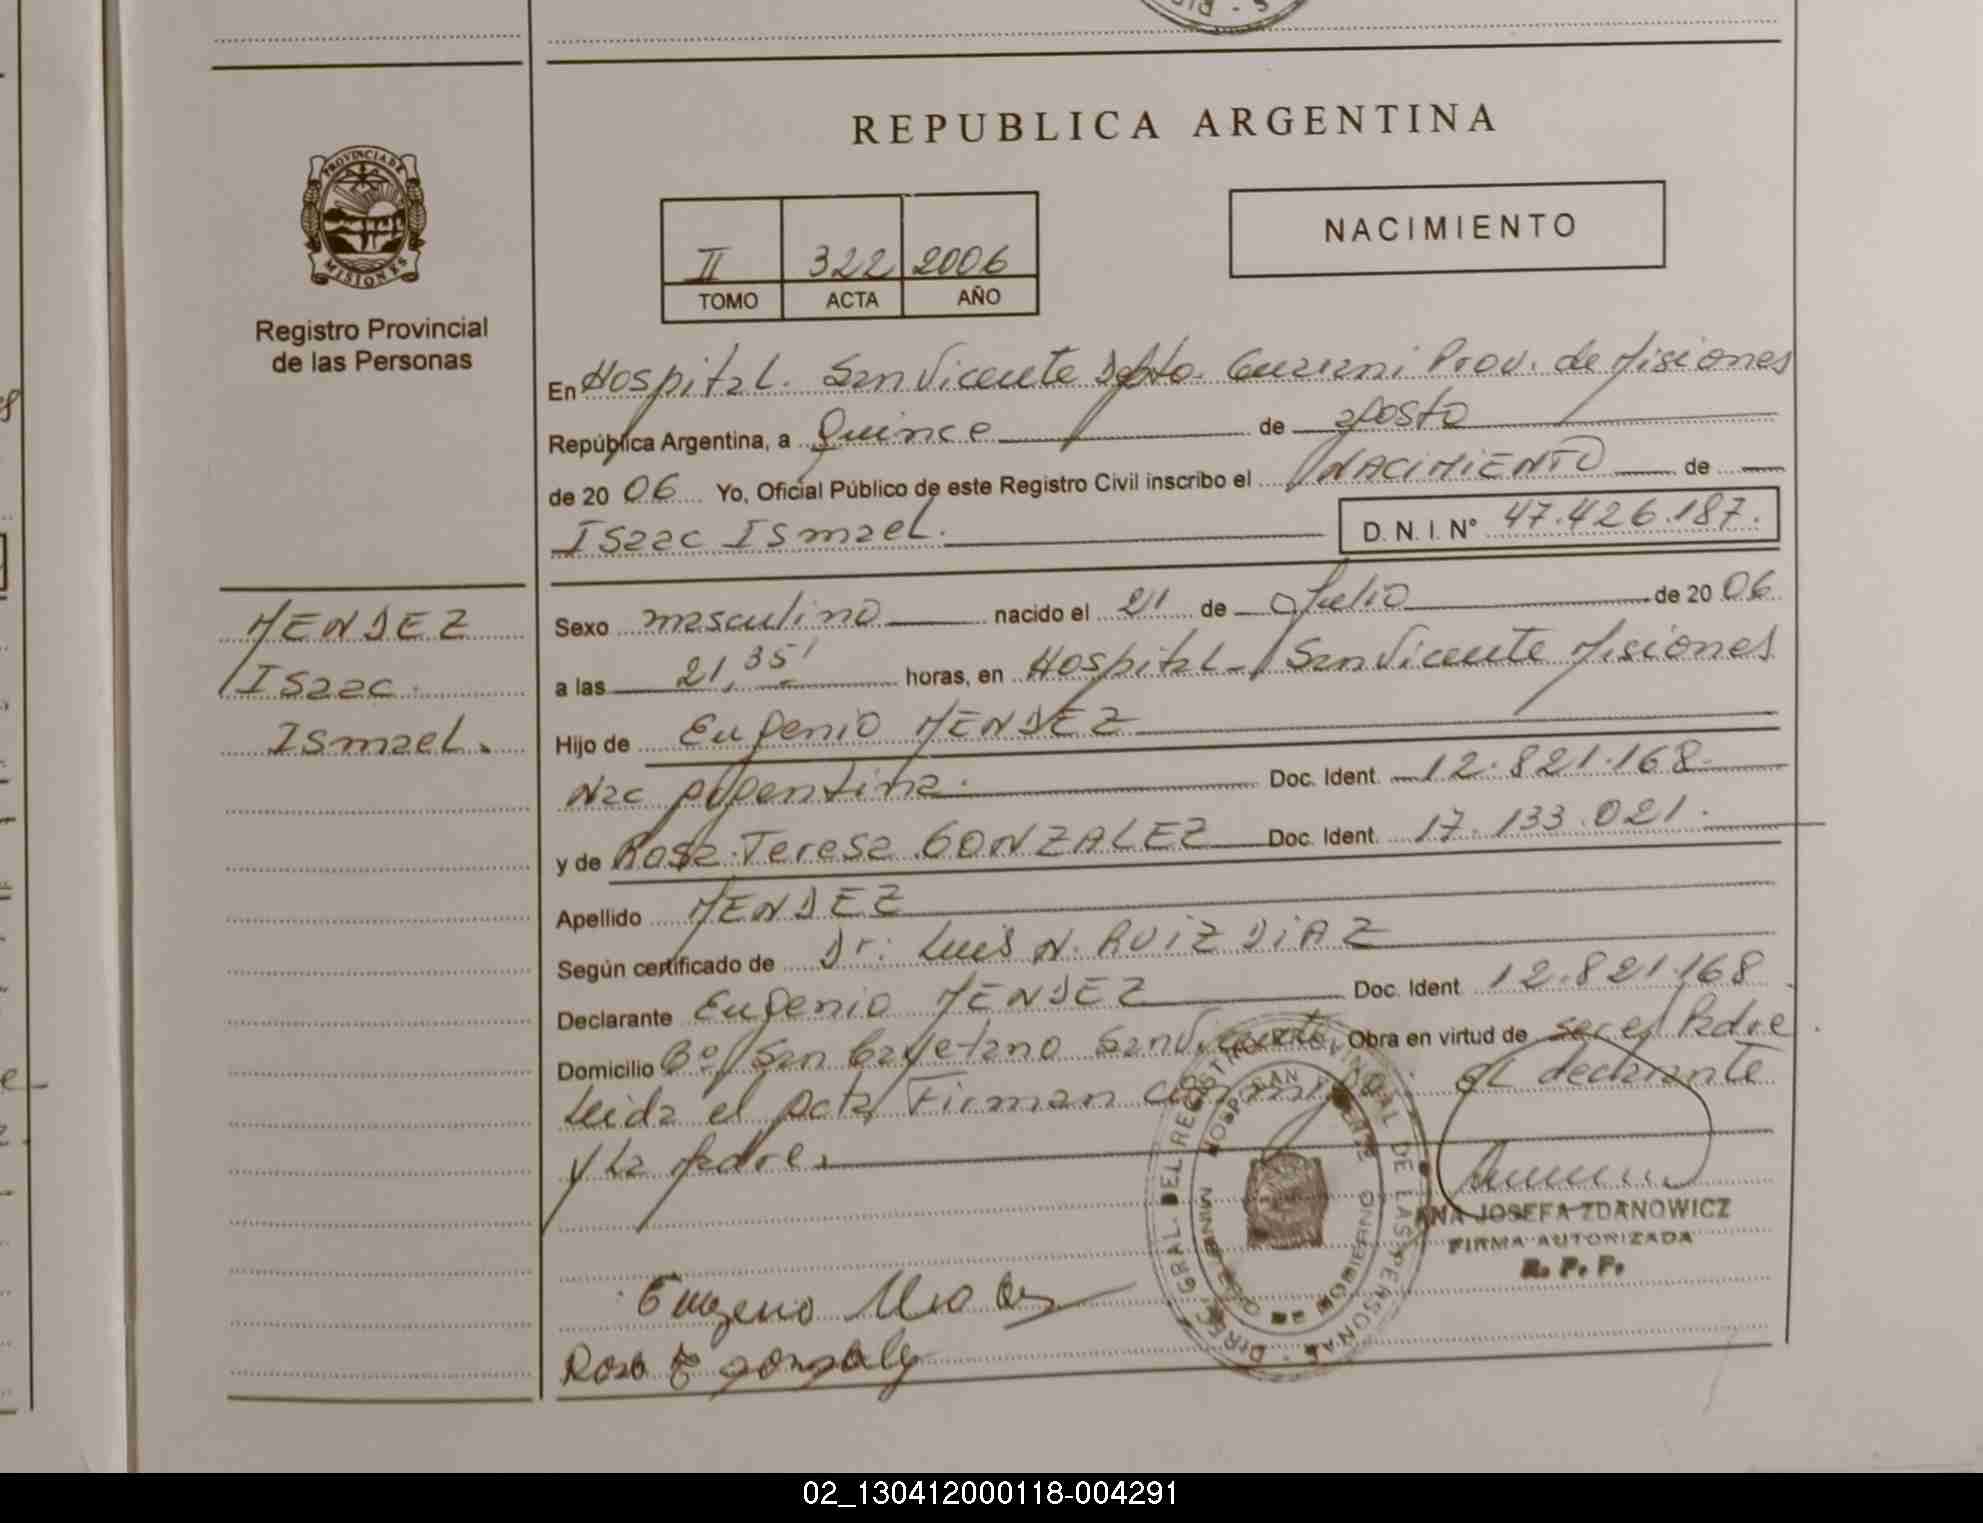 REPUBLICA ARGENTINA
PROVINCIA DE
MISIONES
Registro Provincial
de las Personas
II 322 2006
TOMO ACTA AÑO
NACIMIENTO
En Hospital. San Vicente Dpto. Guarani Prov. de Misiones
República Argentina, a Quince de agosto
de 20 06 Yo, Oficial Público de este Registro Civil inscribo el NACIMIENTO de
Isaac Ismael. D.N.I. N° 47.426.187.
MENDEZ
Isaac
Ismael.
Sexo masculino nacido el 21 de Julio de 20 06
a las 21,35' horas, en Hospital San Vicente Misiones
Hijo de Eugenio MENDEZ
Nac Argentina. Doc. Ident. 12.821.168.
y de Rosa Teresa GONZALEZ Doc. Ident. 17.133.021.
Apellido MENDEZ
Según certificado de Dr. Luis N. RUIZ DIAZ
Declarante Eugenio MENDEZ Doc. Ident 12.821.168
Domicilio B° San Cayetano San Vicente Obra en virtud de ser el Padre
Leida el acta Firman conmigo el declarante
y La Madre.
ANA JOSEFA ZDANOWICZ
FIRMA AUTORIZADA
R. P. P.
Eugenio
Rosa T gonzalez
02_130412000118-004291